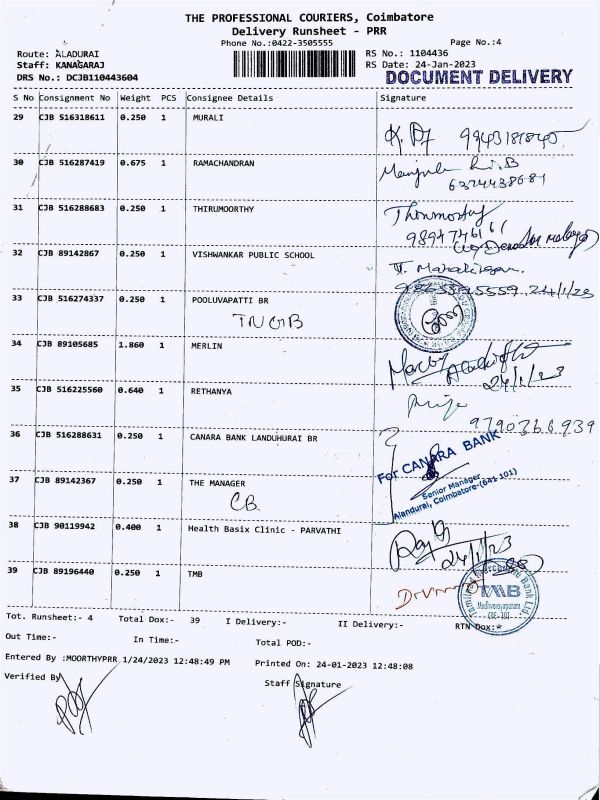 THE PROFESSIONAL COURIERS, Coimbatore
Delivery Runsheet - PRR
Phone No.:0422-3505555 Page No.:4
Route: ALADURAI RS No.: 1104436
Staff: KANAGARAJ RS Date: 24-Jan-2023
DRS No.: DCJB110443604 DOCUMENT DELIVERY
S No Consignment No Weight PCS Consignee Details Signature
29 CJB 516318611 0.250 1 MURALI
30 CJB 516287419 0.675 1 RAMACHANDRAN
6374438681
31 CJB 516288683 0.250 1 THIRUMOORTHY
32 CJB 89142867 0.250 1 VISHWANKAR PUBLIC SCHOOL
24/1/23
33 CJB 516274337 0.250 1 POOLUVAPATTI BR
TNGB
34 CJB 89105685 1.860 1 MERLIN
24/1/23
35 CJB 516225560 0.640 1 RETHANYA
9790366939
36 CJB 516288631 0.250 1 CANARA BANK LANDUHURAI BR
For CANARA BANK
37 CJB 89142367 0.250 1 THE MANAGER
CB
Senior Manager
Alandurai, Coimbatore-(641 101)
38 CJB 90119942 0.400 1 Health Basix Clinic - PARVATHI
24/1/23
39 CJB 89196440 0.250 1 TMB
TMB
Tot. Runsheet:- 4 Total Dox:- 39 I Delivery:- II Delivery:- RTN Dox:*
Out Time:- In Time:- Total POD:-
Entered By :MOORTHYPRR 1/24/2023 12:48:49 PM Printed On: 24-01-2023 12:48:08
Verified By Staff Signature